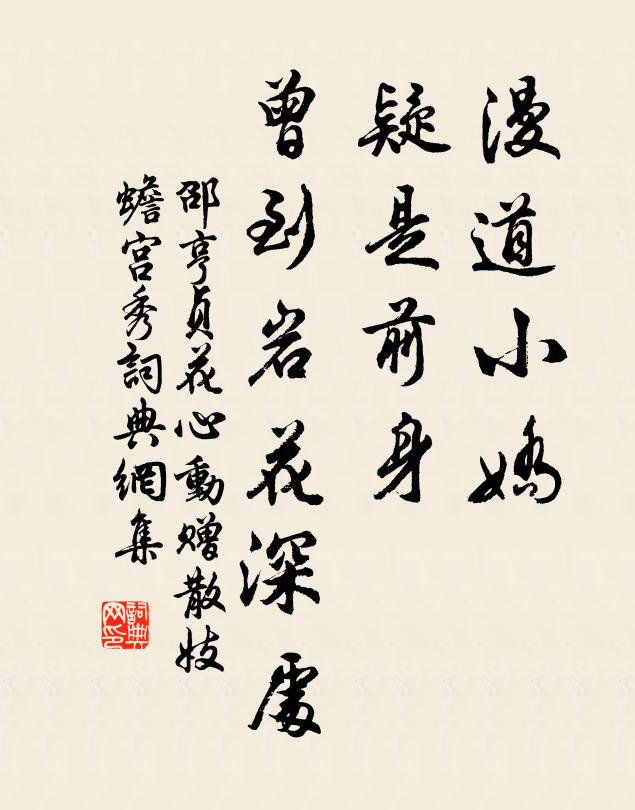 漫道小嬌
疑是前身
曾到岩花深處
邵亨貞花心動贈散妓
蟾宫秀詞典網集
詞典网印